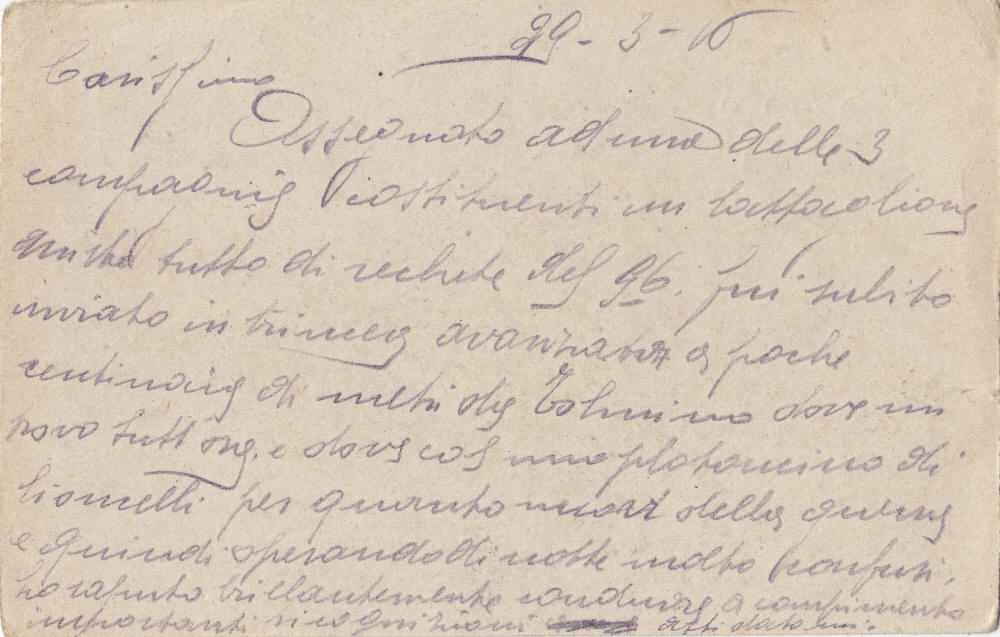 29-3-16
Carissimo
Assegnato ad una delle 3
compagnie costituenti un battaglione
tutto di reclute del 96. fui subito
inviato in trincea avanzata a poche
centinaia di metri da Tolmino dove mi
trovo tutt'ora, e dove col mio plotoncino di
lioncelli per quanto nuovi della guerra
e quindi operando di notte molto confusi,
ho saputo brillantemente condurre a compimento
importanti ricognizioni affidatemi.